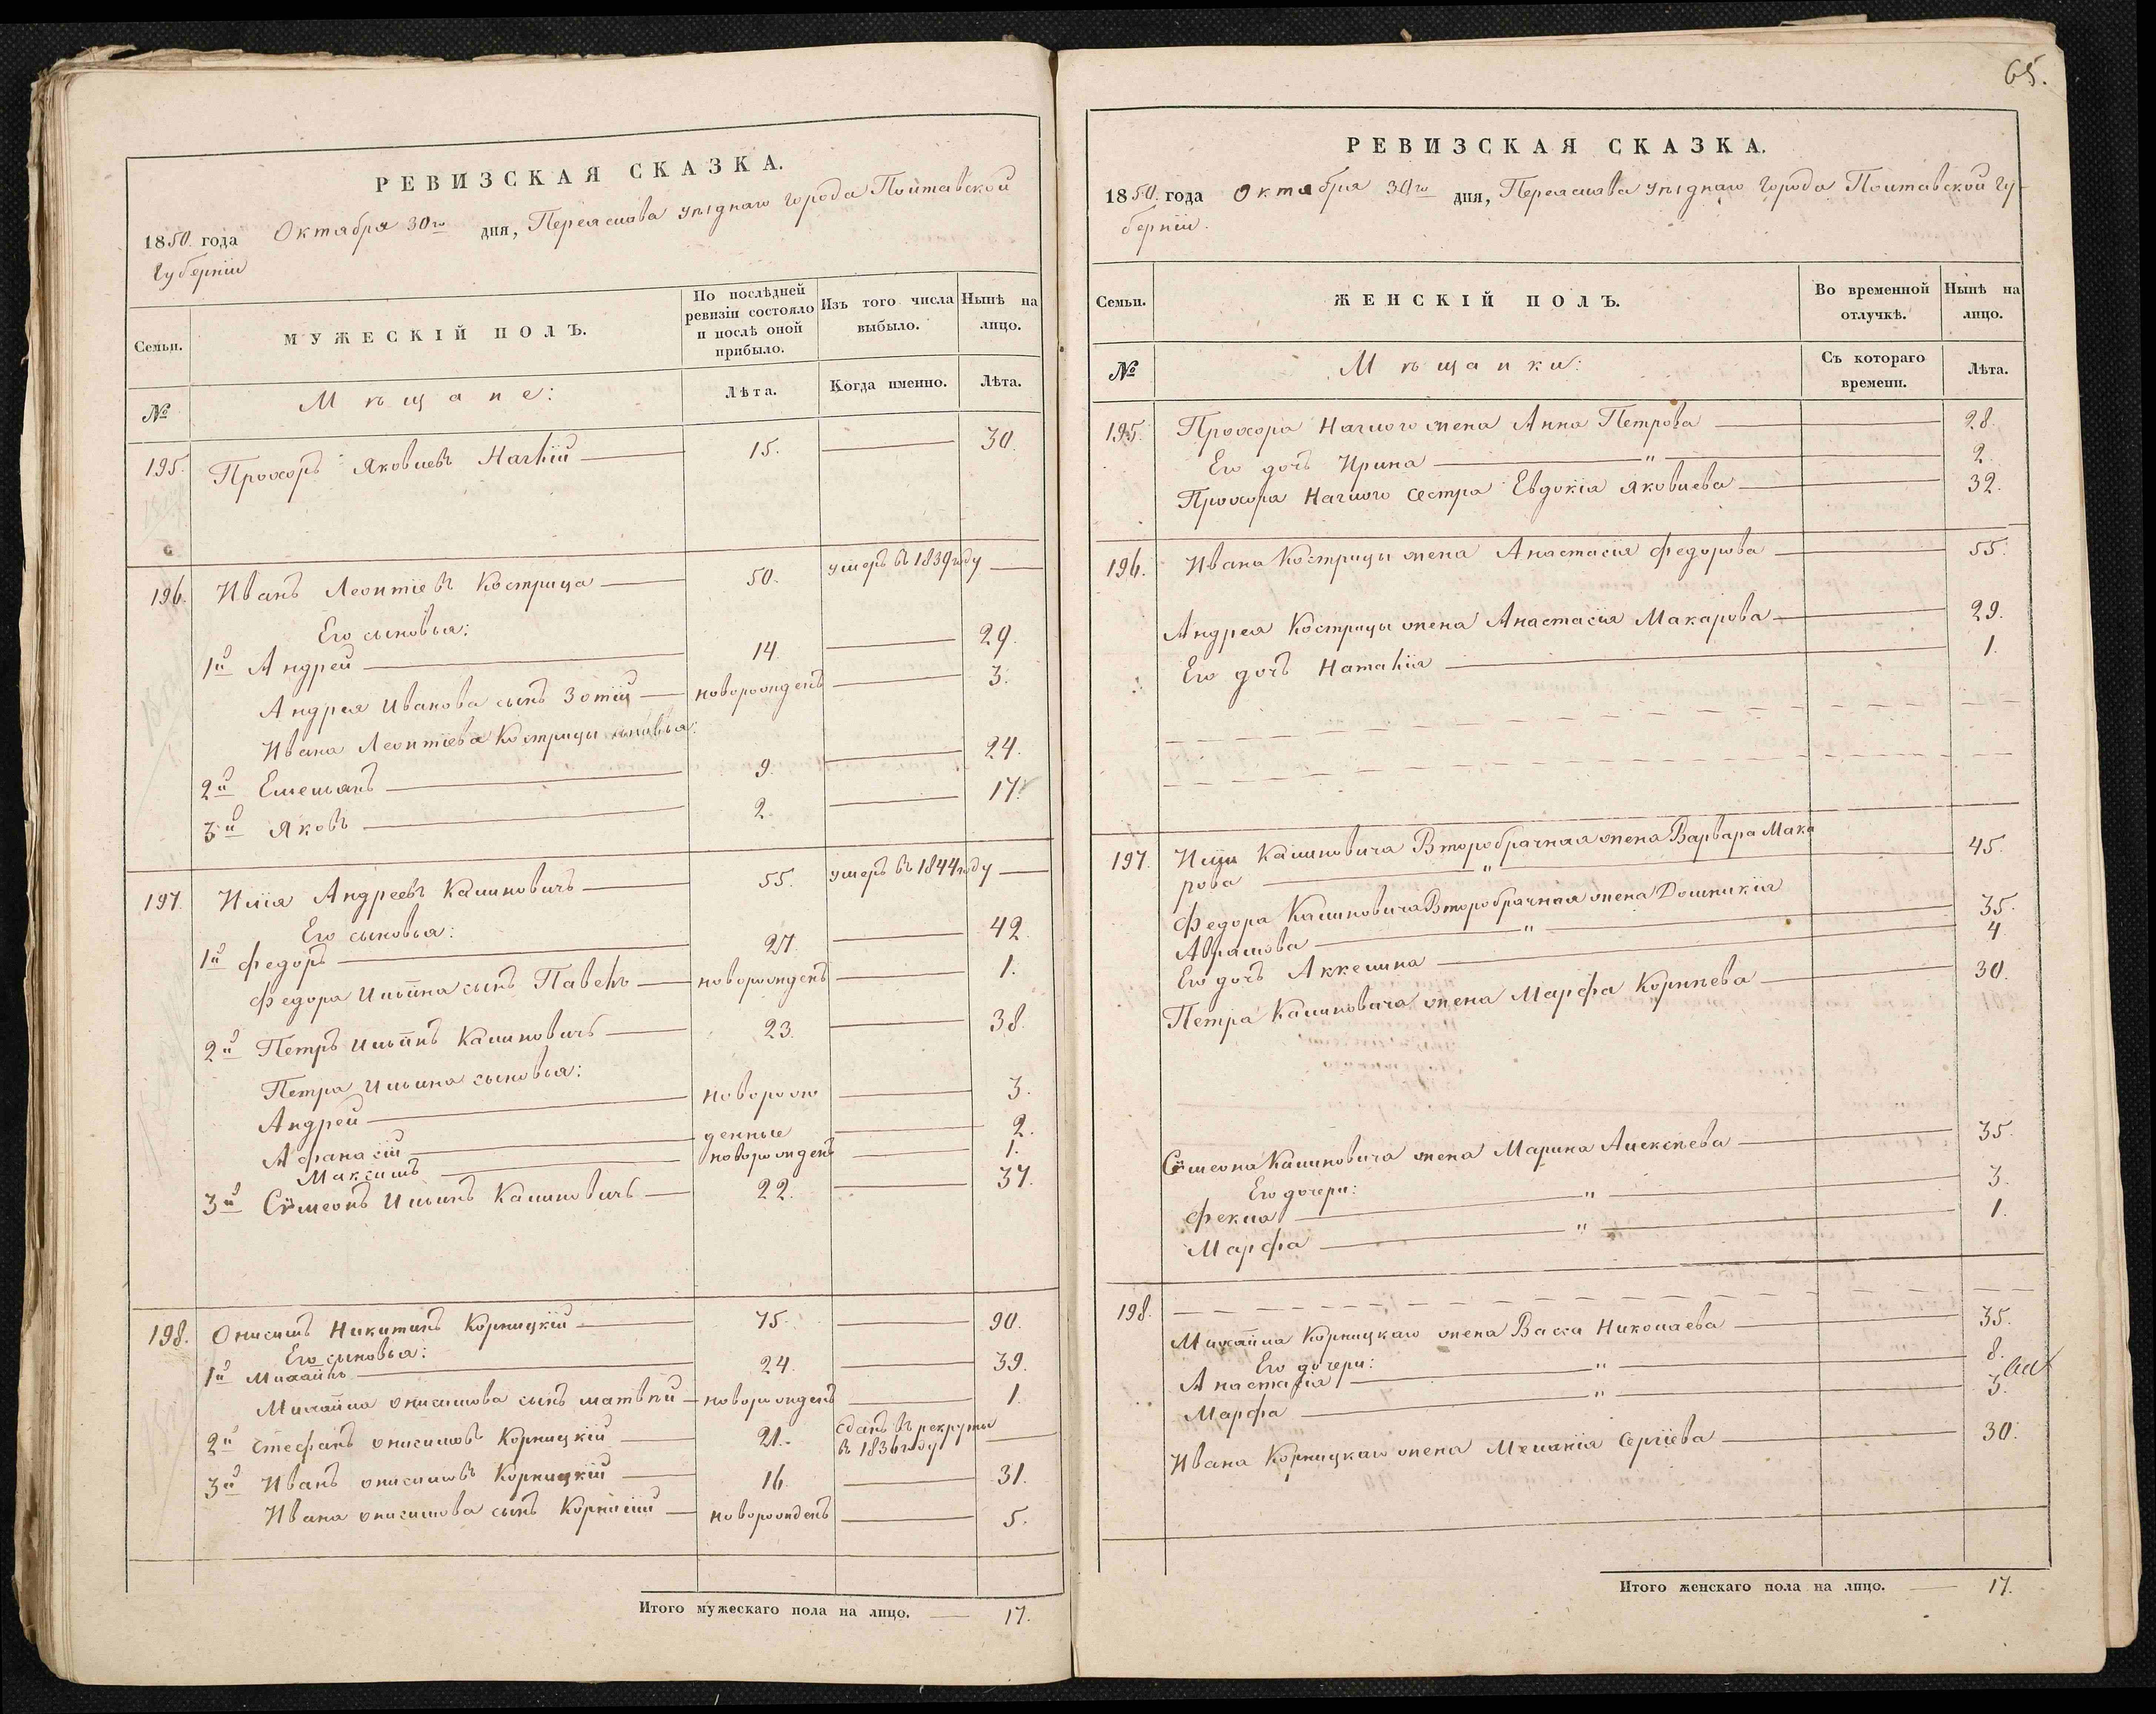 РЕВИЗСКАЯ СКАЗКА.
1850. года Октября 30го дня, Переяслова уѣзднаго города Полтавской
Губерніи
Семьи.
МУЖЕСКІЙ ПОЛЪ.
По послѣдней ревизіи состояло и послѣ оной прибыло.
Изъ того числа выбыло.
Нынѣ на лицо.
№
Мѣщане:
Лѣта.
Когда именно.
Лѣта.
195. Прохоръ Яковлевъ Наглій 15. 30.
196. Иванъ Леонтіевъ Кострица 50. умеръ въ 1839 году
Его сыновья:
1й Андрей 14 29.
Андрея Иванова сынъ Зотій новорожденъ 3.
Ивана Леонтіева Кострицы сыновья:
2й Емельянъ 9. 24.
3й Яковъ 2. 17.
197. Илія Андреевъ Калиновичъ 55. умеръ въ 1844 году
Его сыновья:
1й Федоръ 27. 42.
Федора Ильина сынъ Павелъ новорожденъ 1.
2й Петръ Ильинъ Калиновичъ 23. 38.
Петра Ильина сыновья:
Андрей новорож 3.
Афанасій денные 2.
Максимъ новорожденъ 1.
3й Сѵмеонъ Ильинъ Калиновичъ 22. 37.
198. Онисимъ Никитинъ Корницкій 75. 90.
Его сыновья:
1й Михаилъ 24. 39.
Михайла Онисимова сынъ Матвѣй новорожденъ 1.
2й Стефанъ Онисимовъ Корницкій 21. сданъ въ рекруты
въ 1836 году
3й Иванъ Онисимовъ Корницкій 16. 31.
Ивана Онисимова сынъ Корнилій новорожденъ 5.
Итого мужескаго пола на лицо. 17.
65.
РЕВИЗСКАЯ СКАЗКА.
1850. года Октября 30го дня, Переяслова уѣзднаго города Полтавской Гу-
берніи.
Семьи.
ЖЕНСКІЙ ПОЛЪ.
Во временной отлучкѣ.
Нынѣ на лицо.
№
Мѣщанки:
Съ котораго времени.
Лѣта.
195. Прохора Наглого жена Анна Петрова 28.
Его дочь Ирина " 2.
Прохора Наглого сестра Евдокія Яковлева 32.
196. Ивана Кострицы жена Анастасія Федорова 55.
Андрея Кострицы жена Анастасія Макарова 29.
Его дочь Наталія 1.
197. Иліи Калиновича Второбрачная жена Варвара Мака
рова " 45.
Федора Калиновича Второбрачная жена Домникія
Аврамова " 35.
Его дочь Аккелина 4
Петра Калиновича жена Марфа Корнѣева 30.
Сѵмеона Калиновича жена Марина Алексѣева 35.
Его дочери:
Фекла " 3.
Марфа " 1.
198.
Михайла Корницкаго жена Васса Николаева 35.
Его дочери:
Анастасія " 8.
Марфа " 3.
Ивана Корницкаго жена Меланія Сергіева 30.
Итого женскаго пола на лицо. 17.